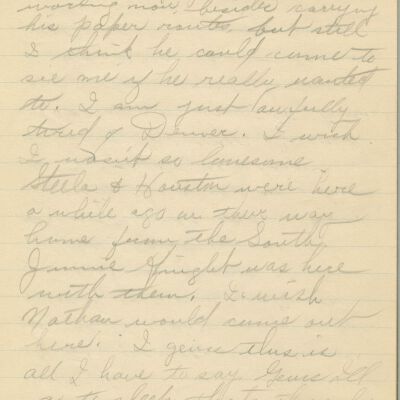 working man, besides carrying
his paper route, but still
I think he could come to
see me if he really wanted
to. I am just awfully
tired of Denver. I wish
I wasn't so lonesome
Stella & Houston were here
a while ago on their way
home from the South,
Jimmie Knight was here
with them. I wish
Nathan would come out
here. I geuss this is
all I have to say. Geuss I'll
go to